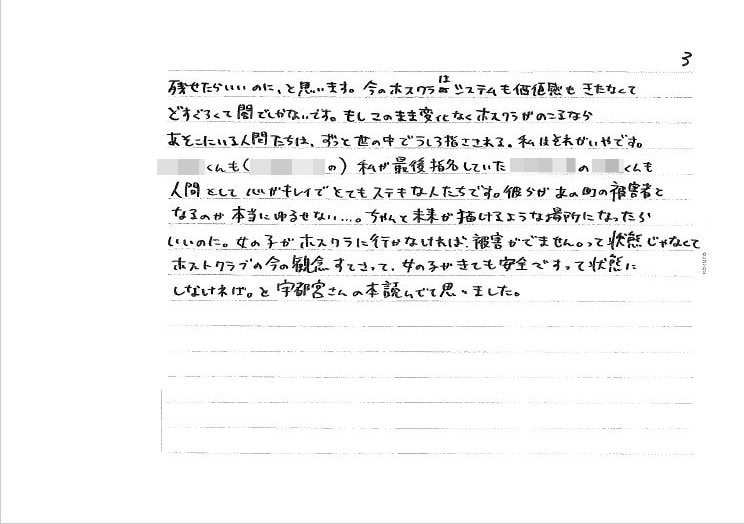 3
残せたらいいのに、と思います。今のホスクラはシステムも価値感もきたなくて
どすぐろくて闇でしかないです。もしこのまま変化なくホスクラがのこるなら
あそこにいる人間たちは、ずっと世の中でうしろ指さされる。私はそれがいやです。
くんも( の) 私が最後指名していた の くんも
人間として心がキレイでとてもステキな人たちです。彼らがあの町の被害者と
なるのが本当にゆるせない…。ちゃんと未来が描けるような場所になったら
いいのに。女の子がホスクラに行かなければ、被害がでません。って状態じゃなくて
ホストクラブの今の観念すてさって、女の子がきても安全ですって状態に
しなければ。と宇都宮さんの本読んでて思いました。